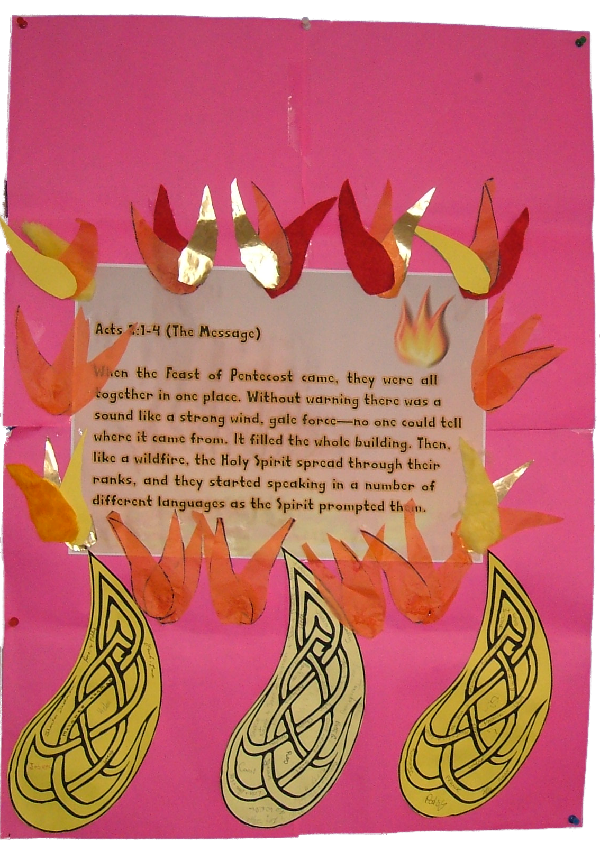 Acts 2:1-4 (The Message)
When the Feast of Pentecost came, they were all
together in one place. Without warning there was a
sound like a strong wind, gale force—no one could tell
where it came from. It filled the whole building. Then,
like a wildfire, the Holy Spirit spread through their
ranks, and they started speaking in a number of
different languages as the Spirit prompted them.